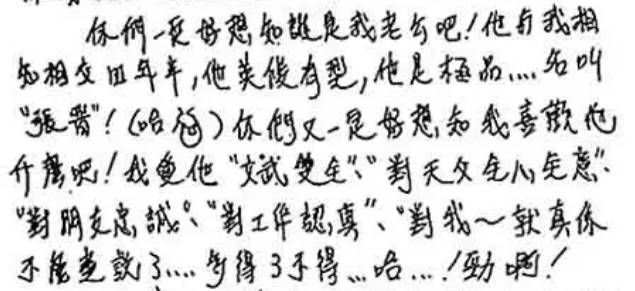 你們一定好想知誰是我老公吧！他與我相
知相交四年半，他英俊有型，他是極品....名叫
"張晋"！（哈哈）你們又一定好想知我喜歡他
什麼吧！我覺他"文武雙全"、"對天父全心全意"、
"對朋友忠誠"、"對工作認真"、"對我～就真係
不能盡說了....了得了不得...哈...！勁啊！